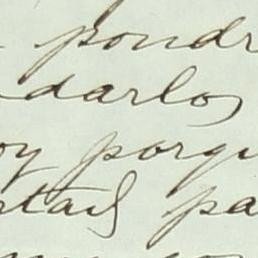 pondr
darlos
oy porqu
rtais pa